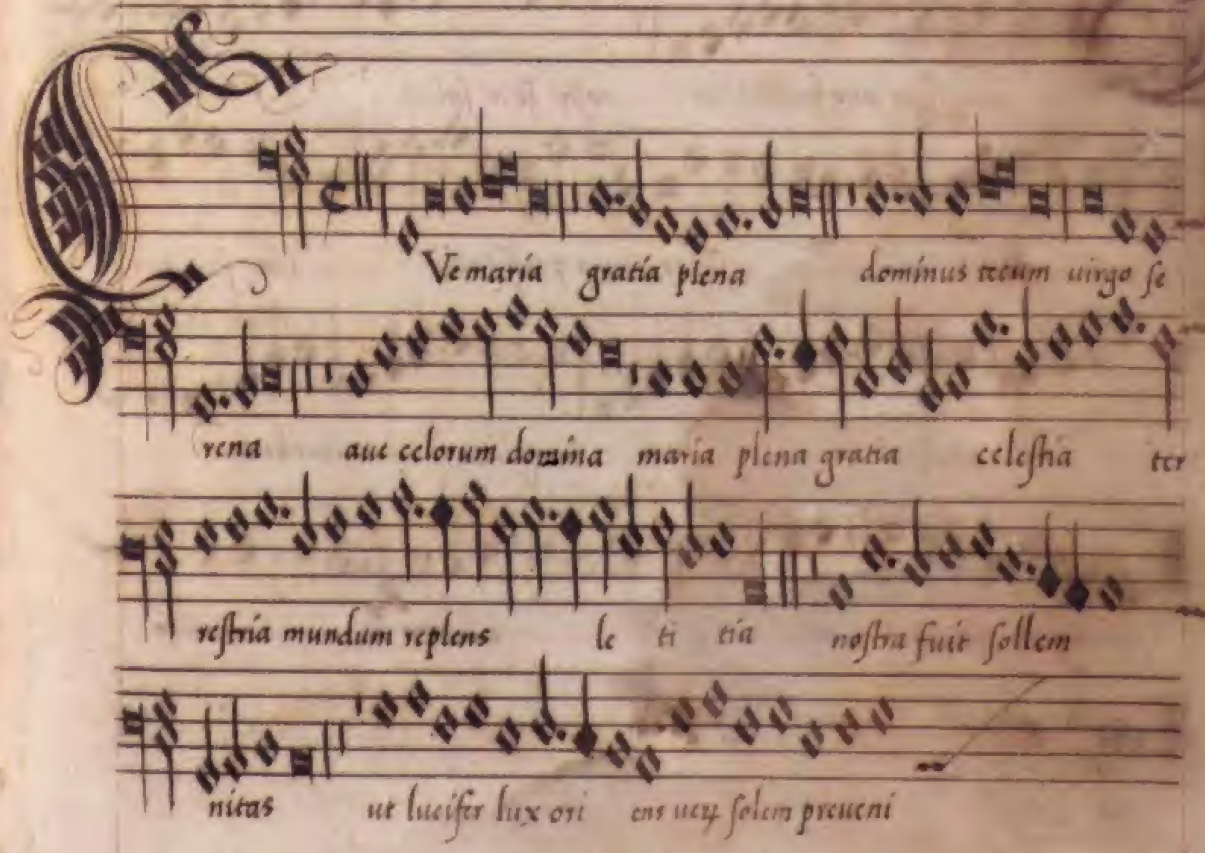 Ve maria gratia plena dominus tecum uirgo se
rena aue celorum domina maria plena gratia celestia ter
restria mundum replens le ti tia nostra fuit sollem
nitas ut lucifer lux ori ens solem preueni